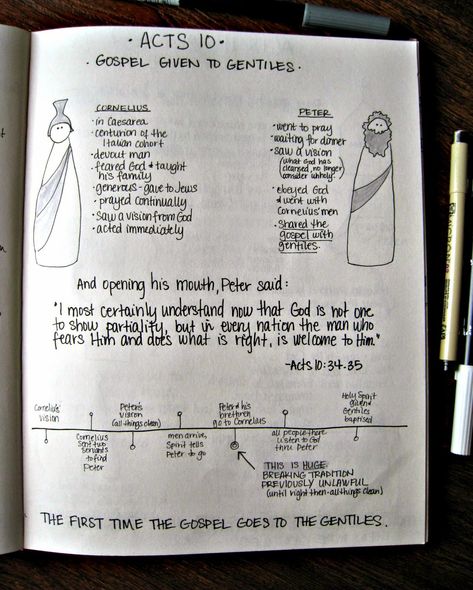 · ACTS 10 ·
· GOSPEL GIVEN TO GENTILES ·
CORNELIUS
· in Caesarea
· centurion of the
Italian cohort
· devout man
· feared God & taught
his family
· generous - gave to Jews
· prayed continually
· saw a vision from God
· acted immediately
PETER
· went to pray
· waiting for dinner
· saw a vision
(what God has
cleansed, no longer
consider unholy.
· obeyed God
& went with
Cornelius' men
· shared the
gospel with
gentiles.
And opening his mouth, Peter said:
"I most certainly understand now that God is not one
to show partiality, but in every nation the man who
fears Him and does what is right, is welcome to Him."
-Acts 10:34-35
Cornelius'
vision
Cornelius
sent two
servants
to find
Peter
Peter's
vision
(all things clean)
men arrive,
Spirit tells
Peter to go
Peter & his
brethren
go to Cornelius
THIS IS HUGE
BREAKING TRADITION
PREVIOUSLY UNLAWFUL
(until right then-all things clean)
all people there
listen to God
thru Peter
Holy Spirit
given &
Gentiles
baptised
THE FIRST TIME THE GOSPEL GOES TO THE GENTILES.